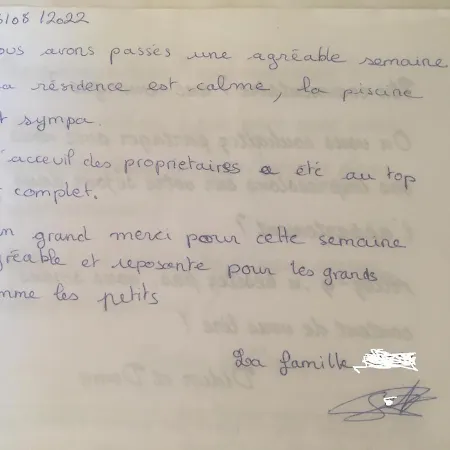 5/08/2022
ous avons passés une agréable semaine
a résidence est calme, la piscine
t sympa.
'acceuil des proprietaires a été au top
t complet.
n grand merci pour cette semaine
gréable et reposente pour les grands
mme les petits
La famille